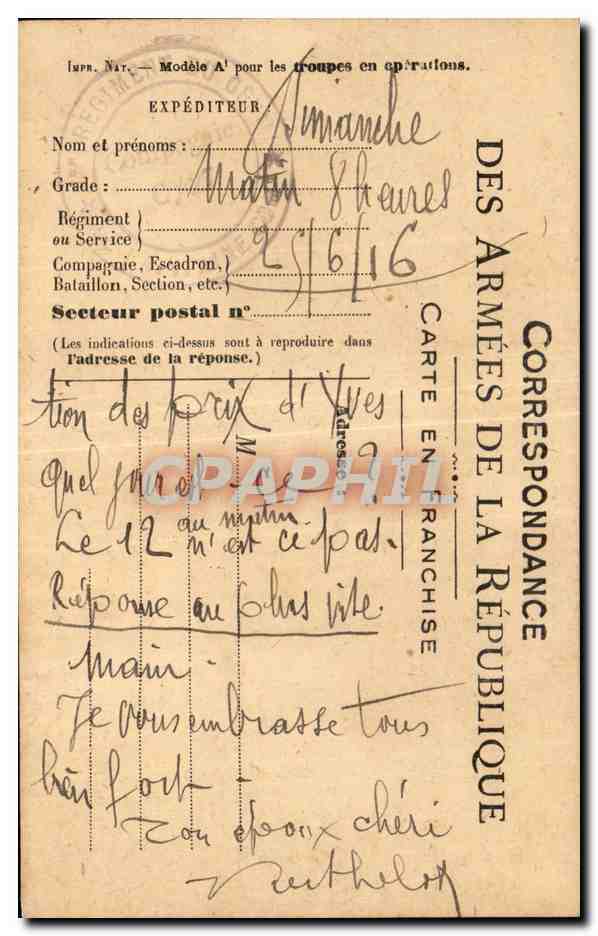 IMPR. NAT. — MODÈLE A¹ pour les troupes en opérations.
EXPÉDITEUR :
Dimanche
Nom et prénoms :
matin 8 heures
Grade :
Régiment
ou Service
25/6/16
Compagnie, Escadron,
Bataillon, Section, etc.
Secteur postal n°
(Les indications ci-dessus sont à reproduire dans
l'adresse de la réponse.)
tion des prix d'Yves
quel jour est-ce ?
au matin
Le 12 n'est ce pas.
Réponse au plus vite.
Je vous embrasse tous
bien fort -
Ton époux chéri
Berthelot
M
Adresse :
CORRESPONDANCE
DES ARMÉES DE LA RÉPUBLIQUE
CARTE EN FRANCHISE
REGIMENT
CPAPHIL